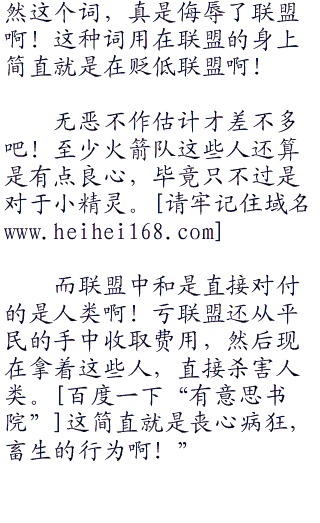 然这个词，真是侮辱了联盟
啊！这种词用在联盟的身上
简直就是在贬低联盟啊！
无恶不作估计才差不多
吧！至少火箭队这些人还算
是有点良心，毕竟只不过是
对于小精灵。[请牢记住域名
www.heihei168.com]
而联盟中和是直接对付
的是人类啊！亏联盟还从平
民的手中收取费用，然后现
在拿着这些人，直接杀害人
类。[百度一下“有意思书
院”]这简直就是丧心病狂，
畜生的行为啊！”